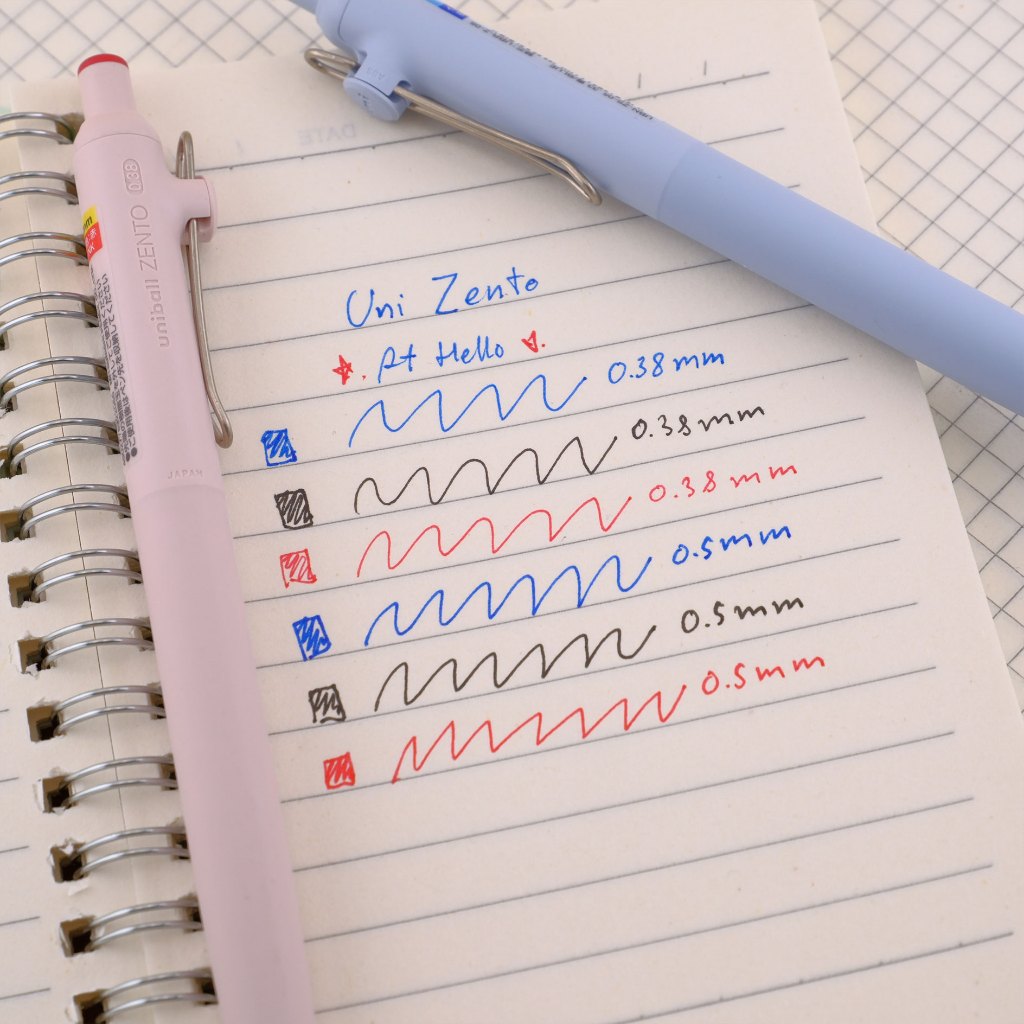 Uni Zento
Pt Hello
0.38mm
0.38mm
0.38mm
0.5mm
0.5mm
0.5mm
uniball ZENTO 0.38
JAPAN
DATE